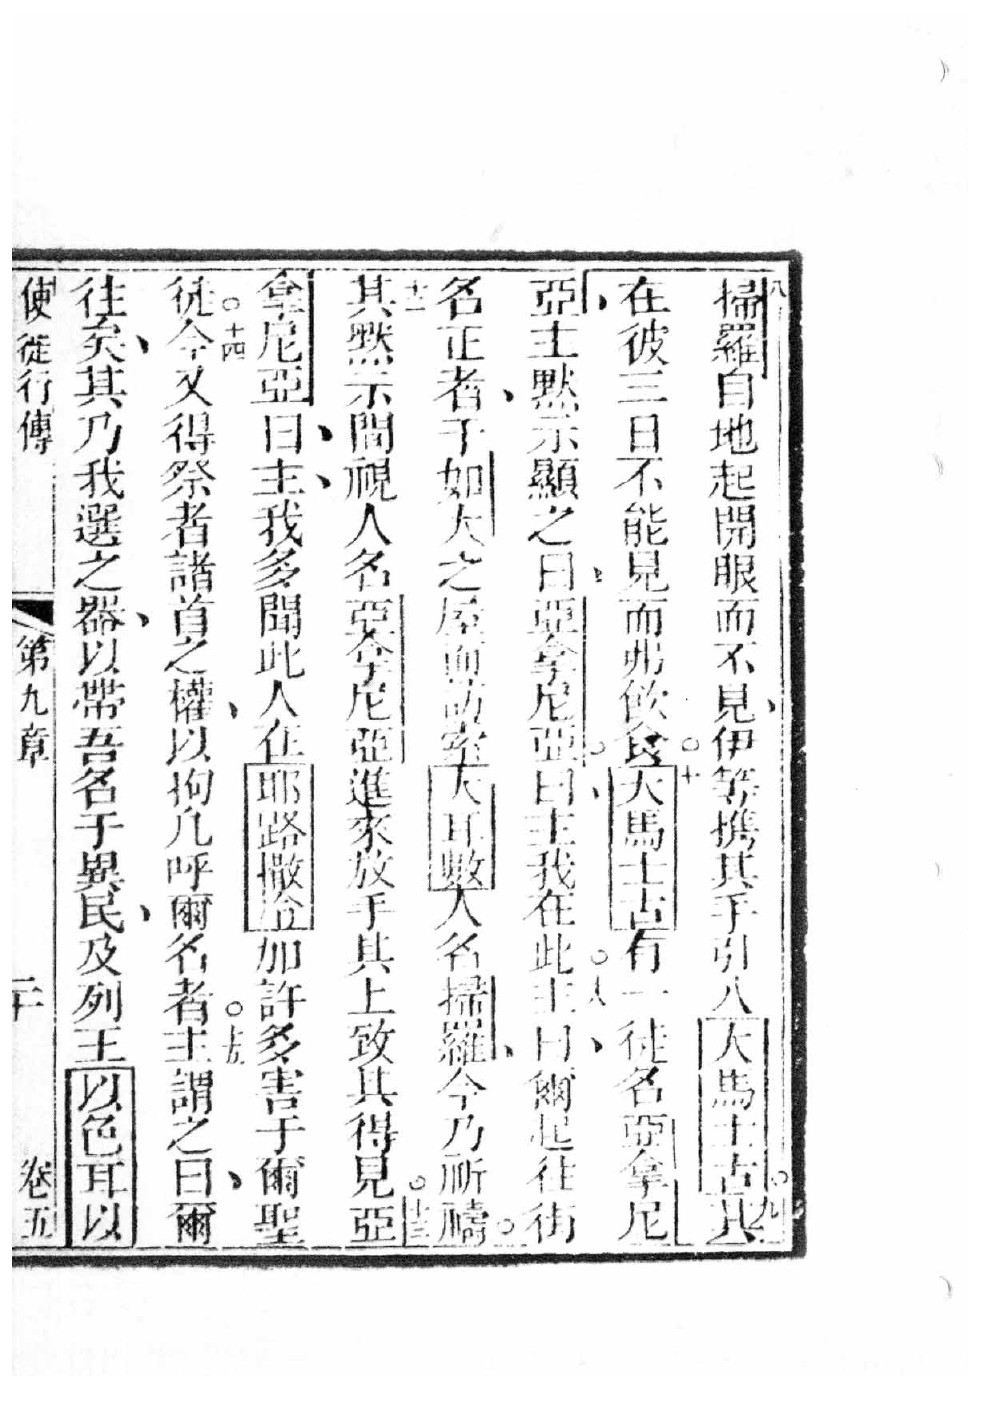 八掃羅自地起開眼而不見伊等携其手引入大馬士古○九其
在彼三日不能見而弗飲食○十大馬士古有一徒名亞拿尼
亞主默示顯之曰亞拿尼亞○曰主我在此○主曰爾起往街
名正者于如大之屋而訪室大耳數人名掃羅今乃祈禱○
十二其默示間視人名亞拿尼亞進來放手其上致其得見○十三亞
拿尼亞曰主我多聞此人在耶路撒冷加許多害于爾聖
徒○十四今又得祭者諸首之權以拘凡呼爾名者○十五主謂之曰爾
往矣其乃我選之器以帶吾名于異民及列王以色耳以
使徒行傳 第九章 二十 卷五